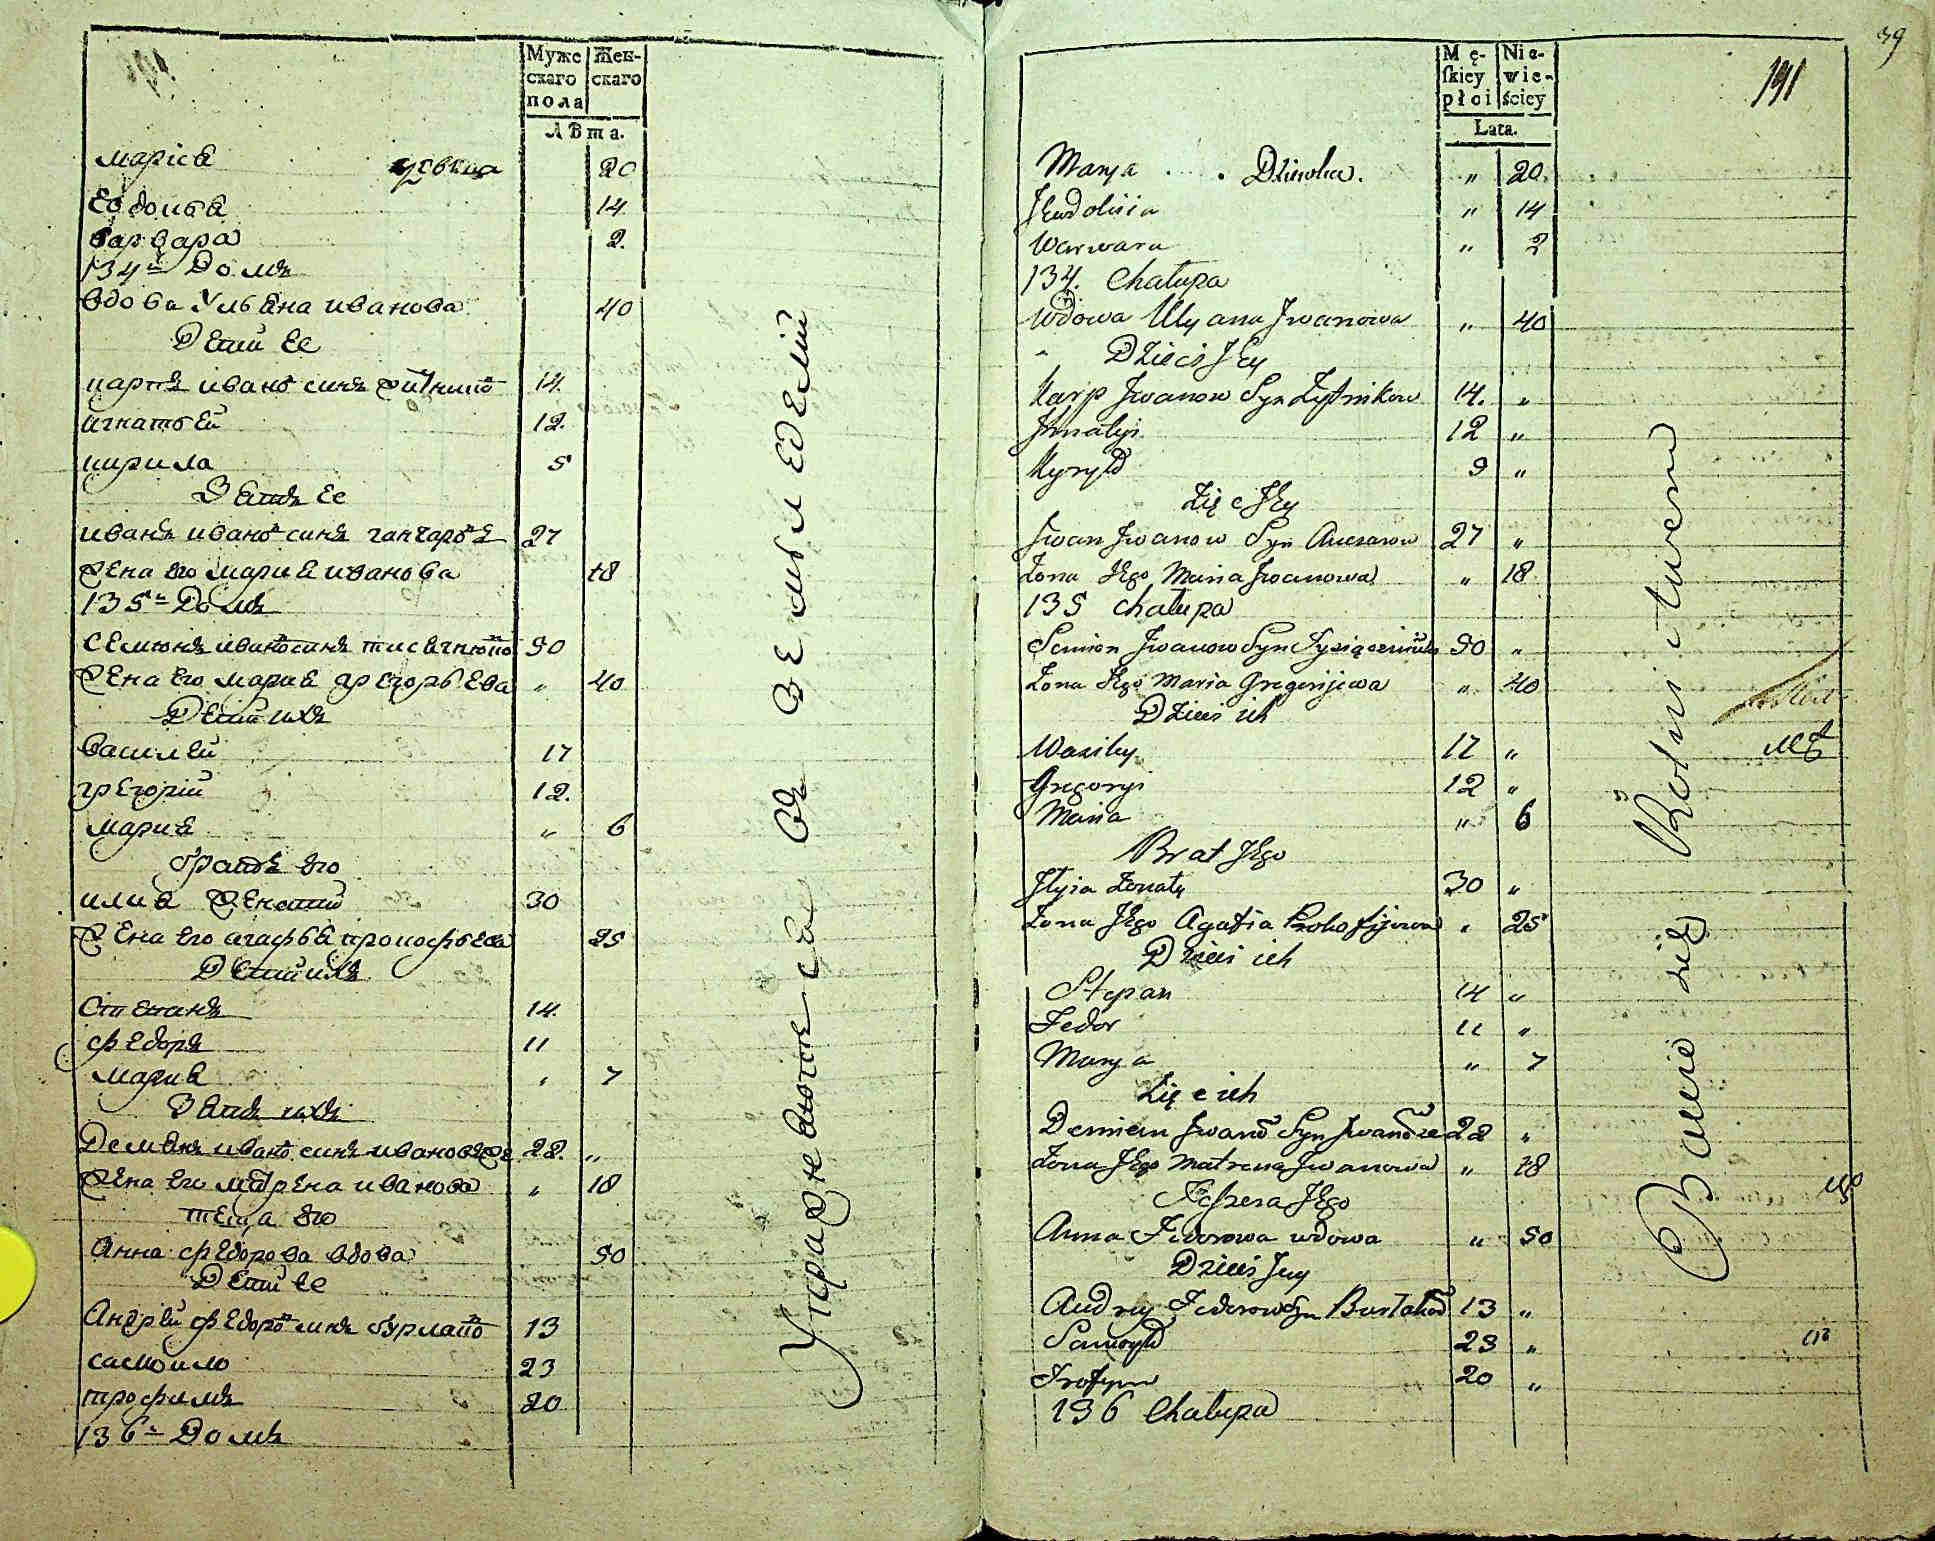 Муже
скаго
пола
Жен-
скаго
Лѣта.
Мария девка 20
Евдокия 14
Варвара 2.
134й Домъ
вдова Ульяна иванова 40
Дети Ее
Карпъ ивановъ синъ Житниковъ 14.
Игнатей 12.
Кирила 5
Зять Ее
иванъ ивановъ синъ ганчаровъ 27
Жена его Мария иванова 18
135й Домъ
Семионъ ивановъ синъ 50
Жена его Мария Грегорьева „ 40
Дети ихъ
Василей 17
Грегорий 12.
Мария „ 6
братъ его
илия Женатий 30
Жена его агафья прокофьева 25
Дети ихъ
Степанъ 14.
Федоръ 11
Мария „ 7
Зять ихъ
Демянъ ивановъ синъ 22. „
Жена его Матрена иванова „ 18
теща его
Анна Федорова вдова 50
Дети Ее
Андрей Федоровъ синъ бурлаковъ 13
Самоило 23
Трофимъ 20
136й Домъ
Упражняются въ земледелии
39
191
Mę-
ſkiey
płci
Nie-
wie-
ściey
Lata.
Marya . . Dziewka. „ 20.
Jewdokiia „ 14
Warwara „ 2
134. Chałupa
Wdowa Ulyana Jwanowa „ 40
Dzieci Jey
Karp Jwanow Syn Zytnikow 14. „
Jhnatyi 12 „
Kyryło 9 „
Zięc Jey
Jwan Jwanow Syn 27 „
Zona Jego Maria Jwanowa „ 18
135 chałupa
Semion Jwanow Syn 50 „
Zona Jego Maria Gregorijewa „ 40
Dzieci ich
Wasiley 17 „
Gregoryi 12 „
Maria „ 6
Brat Jego
Jlyia Zonaty 30 „
Zona Jego Agafia Prokofijowa „ 25
Dzieci ich
Stepan 14 „
Fedor 11 „
Marya „ 7
Zięc ich
Demian Jwanow Syn 22 „
Zona Jego Matrena Jwanowa „ 18
Teszcza Jego
Anna Fedorowa wdowa „ 50
Dzieci Jey
Andrey Fedorow Syn Burłakow 13 „
Samoyło 23 „
Trofym 20 „
136 Chałupa
Bawie się Rolnictwem